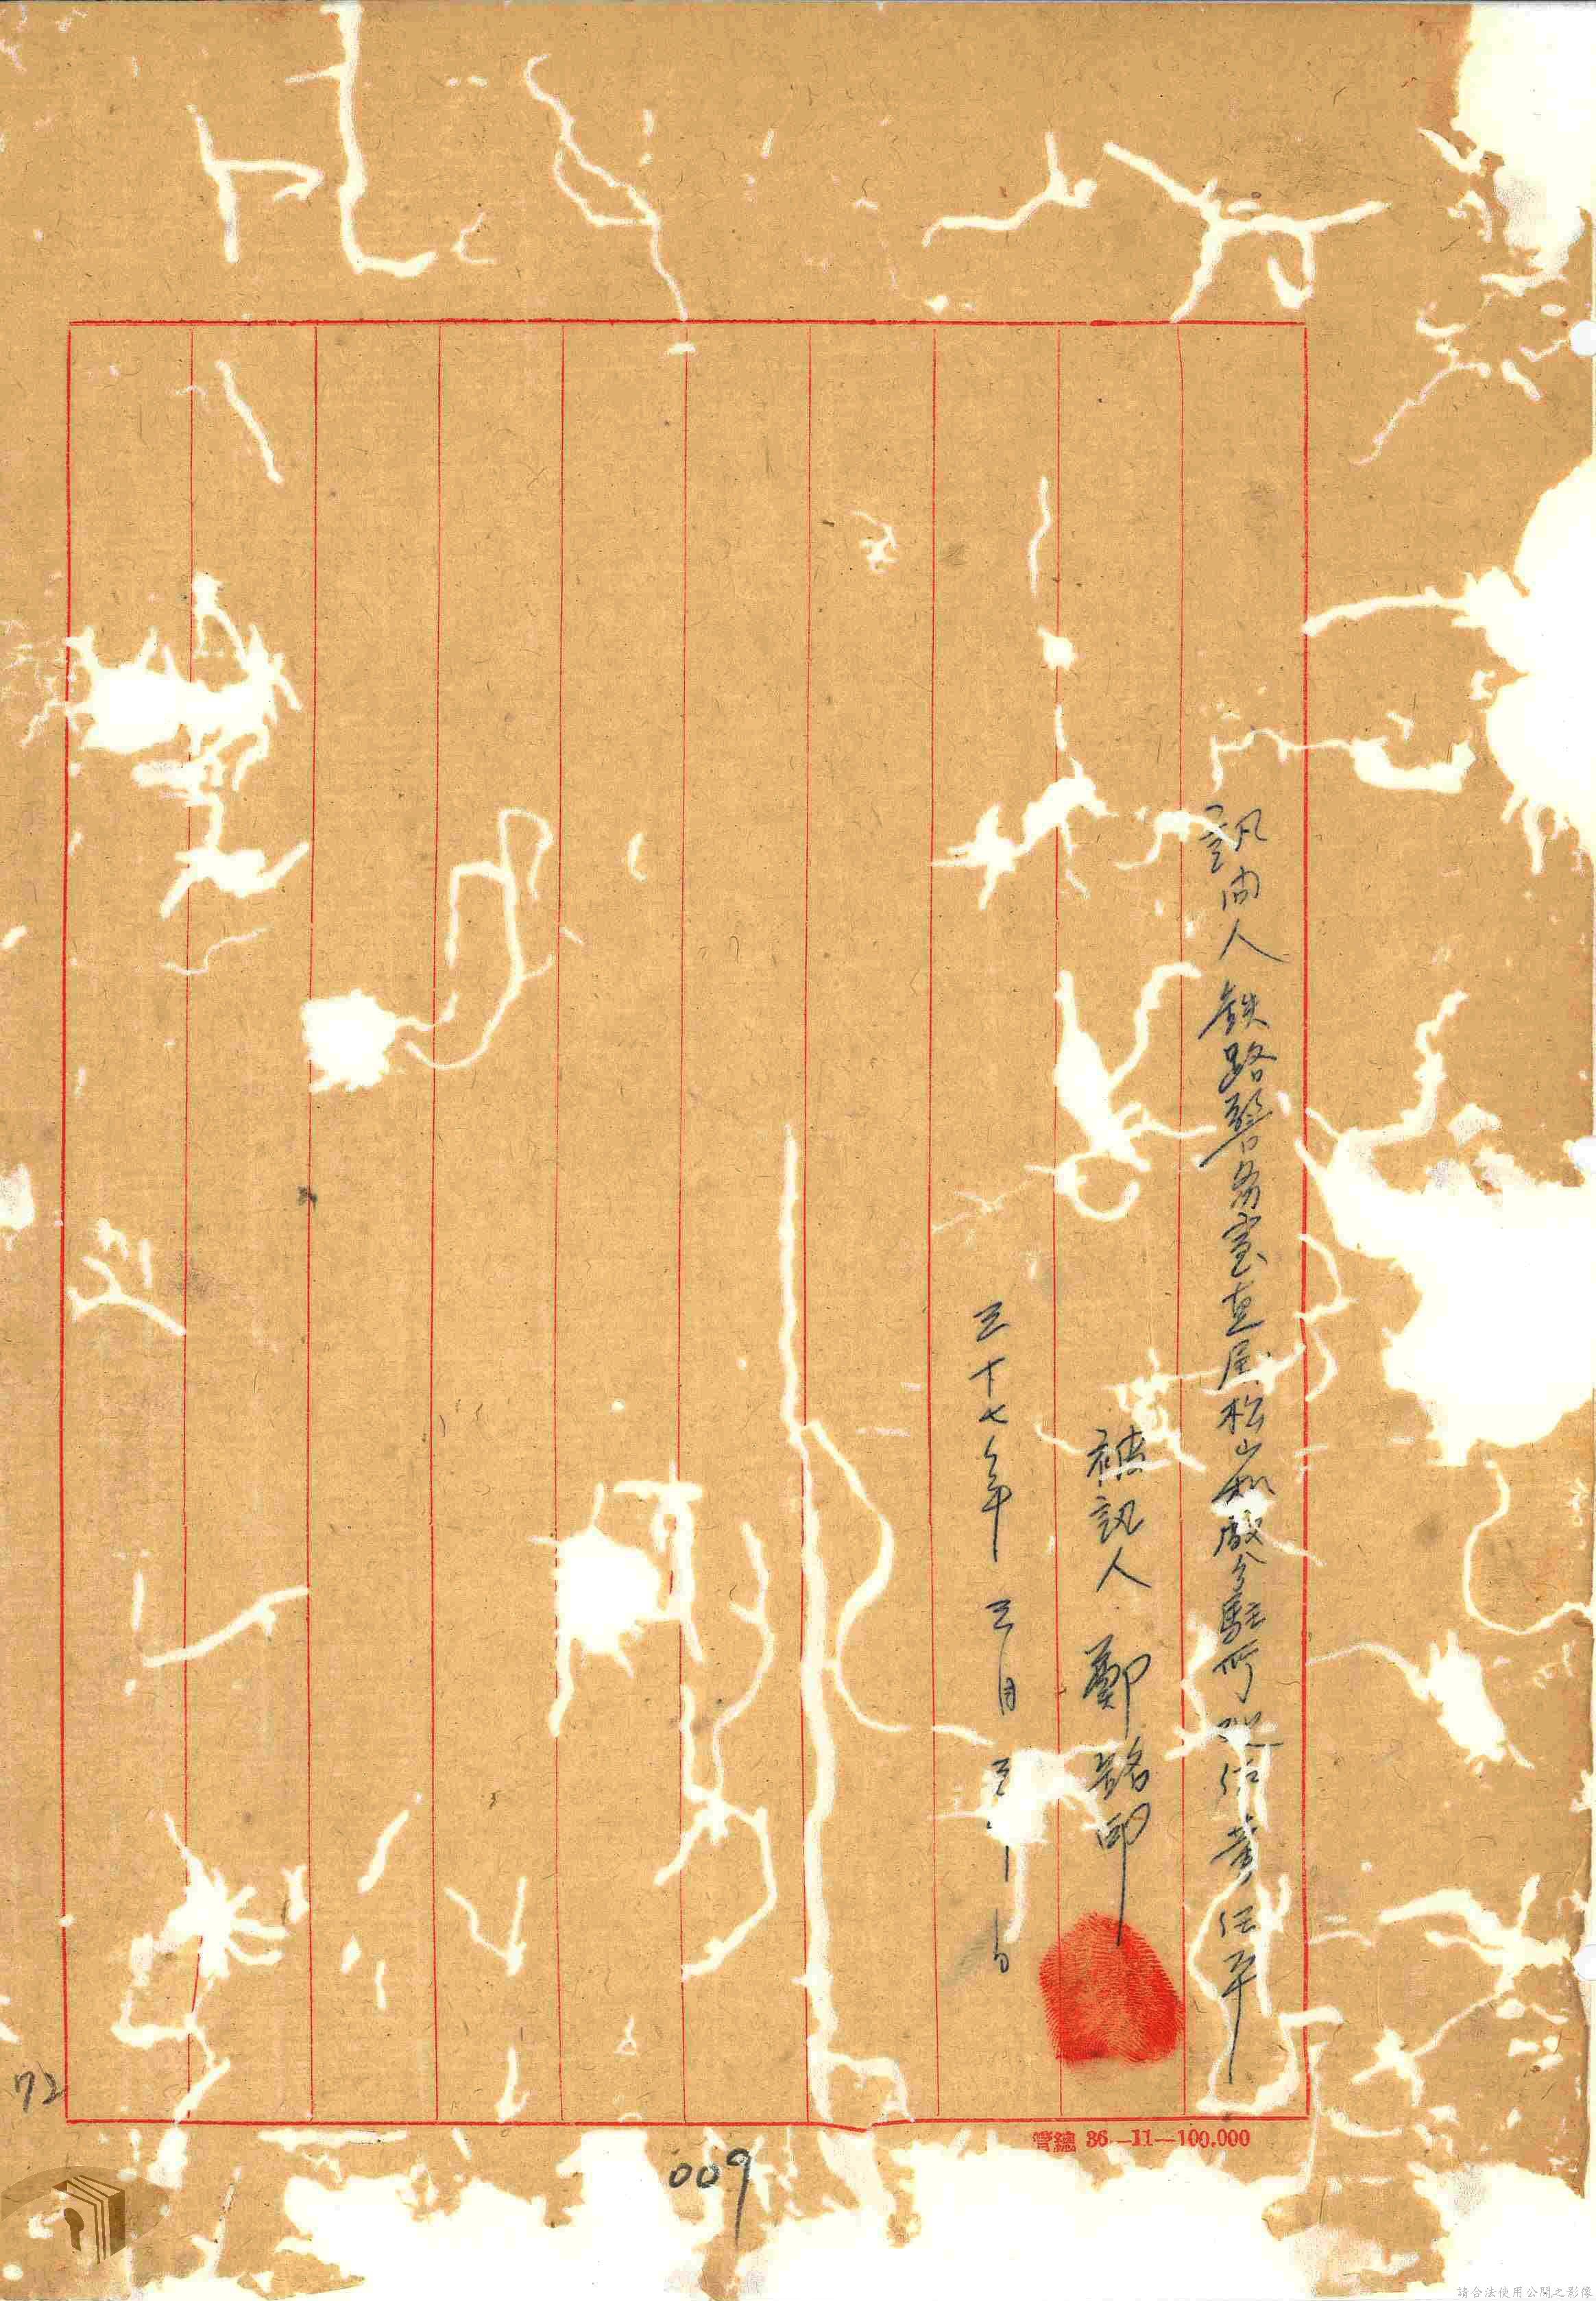 訊問人 鉄路警务室直屬松山机廠分駐所 巡佐 黃任平
被訊人 鄭銘印
三十七年 三月 三十日
管總 36—11—100.000
72
009
請合法使用公開之影像